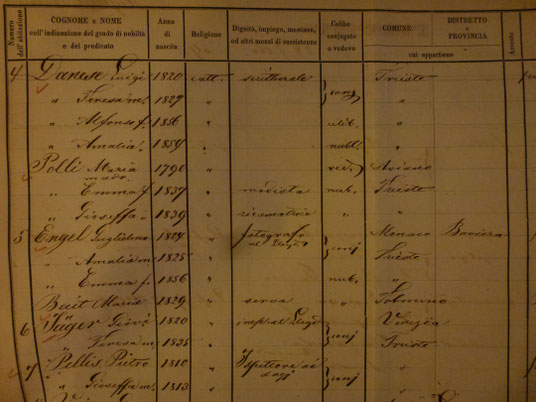 Numero dell'abitazione
COGNOME e NOME
coll'indicazione del grado di nobiltà
e del predicato
Anno di nascita
Religione
Dignità, impiego, mestiere,
ed altri mezzi di sussistenza
Celibe
conjugato
o vedovo
COMUNE
DISTRETTO
e
PROVINCIA
cui appartiene
Assente
4 Danese Luigi 1820 catt. Trieste
" Teresa m. 1827 " conj "
" Alfonso f. 1856 " celib. "
" Amalia " 1859 " nubl. "
Polli Maria 1790 " ved. Aviano
madre
" Emma f. 1837 " modista nub. Trieste
" Gioseffa " 1839 " " "
5 Engel Guglielmo 1824 " fotografo conj Monaco Baviera
al Lloyd
" Amalia m. 1825 " Trieste
" Emma f. 1856 " nub. "
Maria 1829 " serva " Tolmino
6 Jäger Giov. 1820 " imp. al Lloyd conj Venezia
" Teresa m. 1835 " Trieste
7 Pellis Pietro 1810 " conj "
" Gioseffa m. 1813 " "